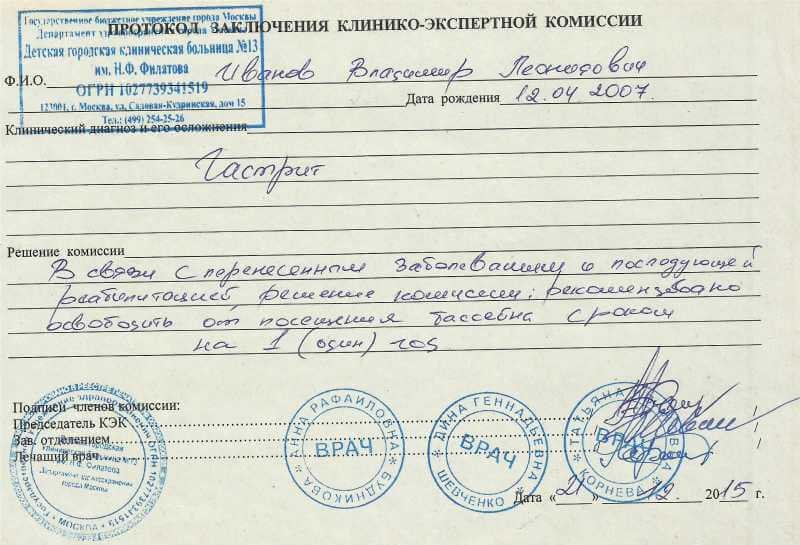 Государственное бюджетное учреждение города Москвы
ПРОТОКОЛ ЗАКЛЮЧЕНИЯ КЛИНИКО-ЭКСПЕРТНОЙ КОМИССИИ
Департамент здравоохранения города Москвы
Детская городская клиническая больница №13
им. Н.Ф. Филатова
ОГРН 1027739341519
123001, г. Москва, ул. Садовая-Кудринская, дом 15
Тел.: (499) 254-25-26
Ф.И.О. Иванов Владимир Леонидович
Дата рождения 12.04 2007.
Клинический диагноз и его осложнения
Гастрит
Решение комиссии
В связи с перенесенным заболеванием и последующей
реабилитацией, решение комиссии: рекомендовано
освободить от посещения бассейна сроком
на 1 (один) год
Подписи членов комиссии:
Председатель КЭК
Зав. отделением
Лечащий врач
АННА РАФАИЛОВНА БУДНИКОВА
ВРАЧ
ДИНА ГЕННАДЬЕВНА ШЕВЧЕНКО
ВРАЧ
ТАТЬЯНА КОРНЕВА
ВРАЧ
ОГРН 1027739341519
им. Н.Ф. Филатова
города Москвы
МОСКВА
Дата «21» 12. 2015 г.